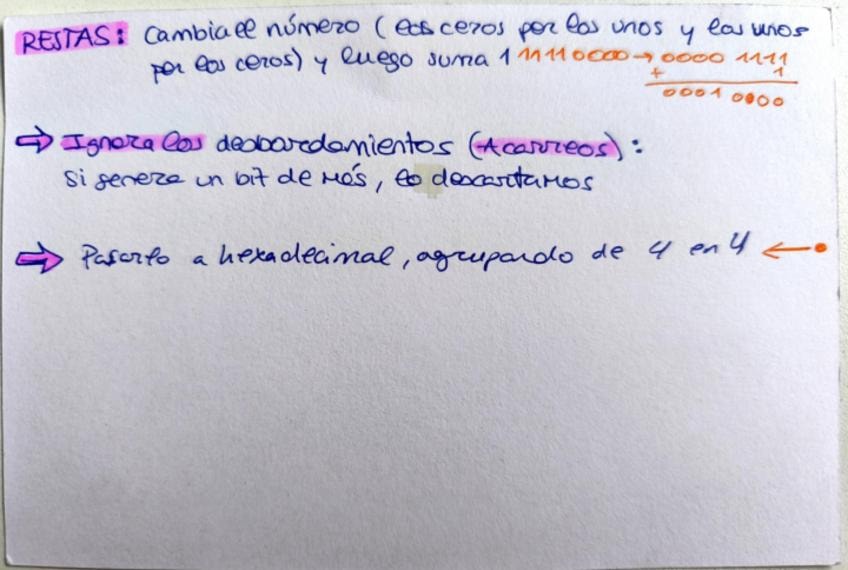 RESTAS: Cambia el número (los ceros por los unos y los unos
por los ceros) y luego suma 1 11110000 → 0000 1111
+ 1
0001 0000
⇒ Ignora los desbordamientos (Acarreos):
si genera un bit de más, lo descartamos
⇒ Pasarlo a hexadecimal, agrupando de 4 en 4 ←